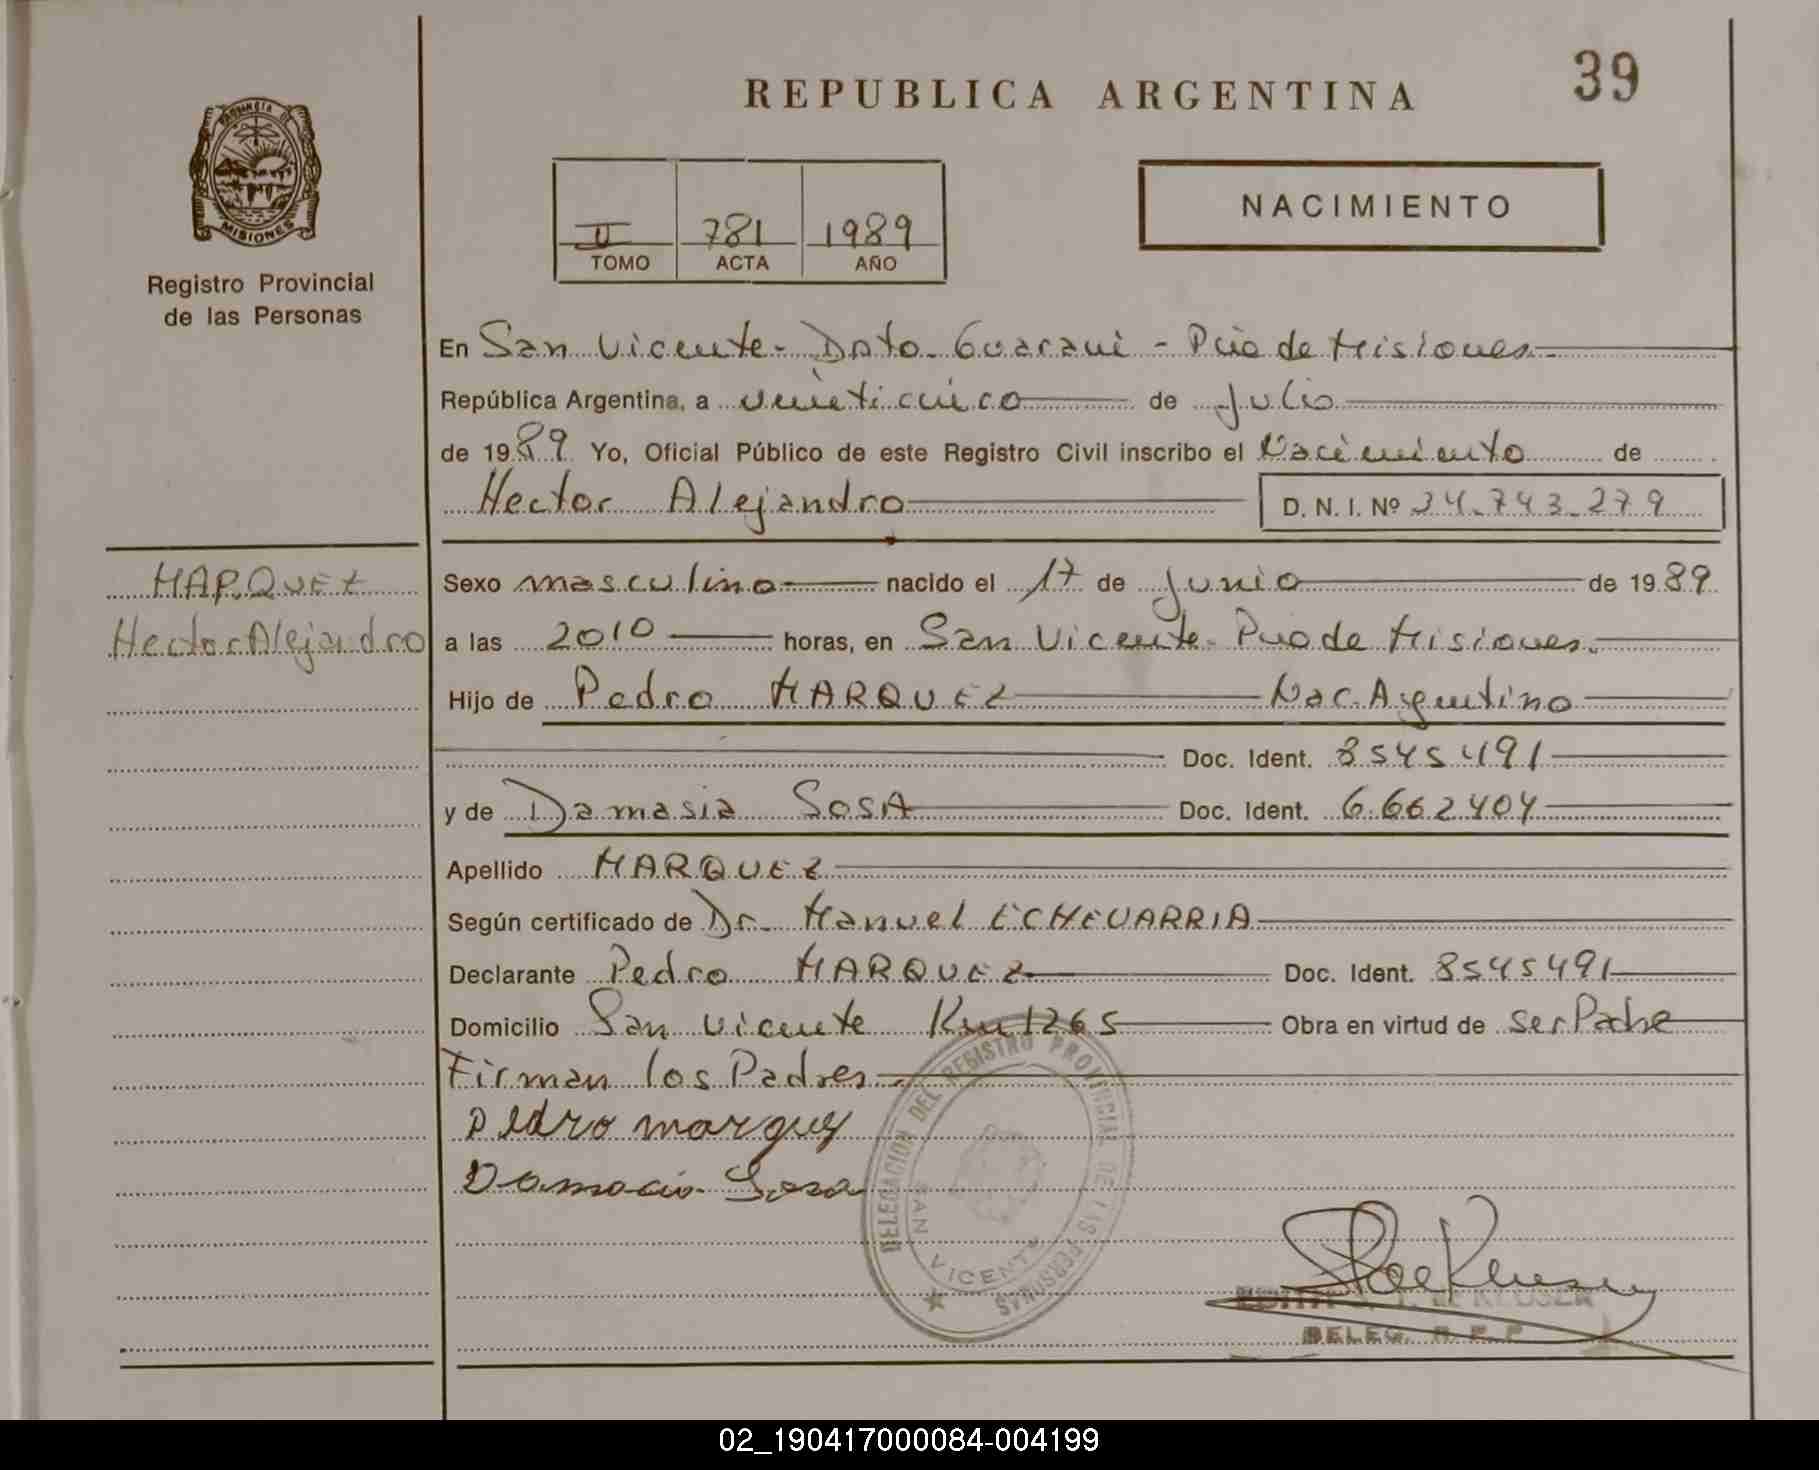 REPUBLICA ARGENTINA
39
PROVINCIA DE
MISIONES
Registro Provincial
de las Personas
II 781 1989
TOMO ACTA AÑO
NACIMIENTO
En San Vicente - Dpto. Guaraní - Pcia de Misiones.
República Argentina, a veinticinco de Julio
de 1989 Yo, Oficial Público de este Registro Civil inscribo el Nacimiento de
Hector Alejandro D. N. I. Nº 34.743.279
MARQUEZ
Hector Alejandro
Sexo masculino nacido el 17 de Junio de 1989
a las 2010 horas, en San Vicente - Pcia de Misiones.
Hijo de Pedro MARQUEZ Nac. Argentino
Doc. Ident. 8545491
y de Damasia SOSA Doc. Ident. 6.662404
Apellido MARQUEZ
Según certificado de Dr. Manuel ECHEVARRIA
Declarante Pedro MARQUEZ Doc. Ident. 8545491
Domicilio San Vicente Km 1265 Obra en virtud de ser Padre
Firman los Padres.
Pedro marquez
Damacia Sosa
DELEGACION DEL REGISTRO PROVINCIAL DE LAS PERSONAS
SAN VICENTE
DELEG. R. P. P.
02_190417000084-004199